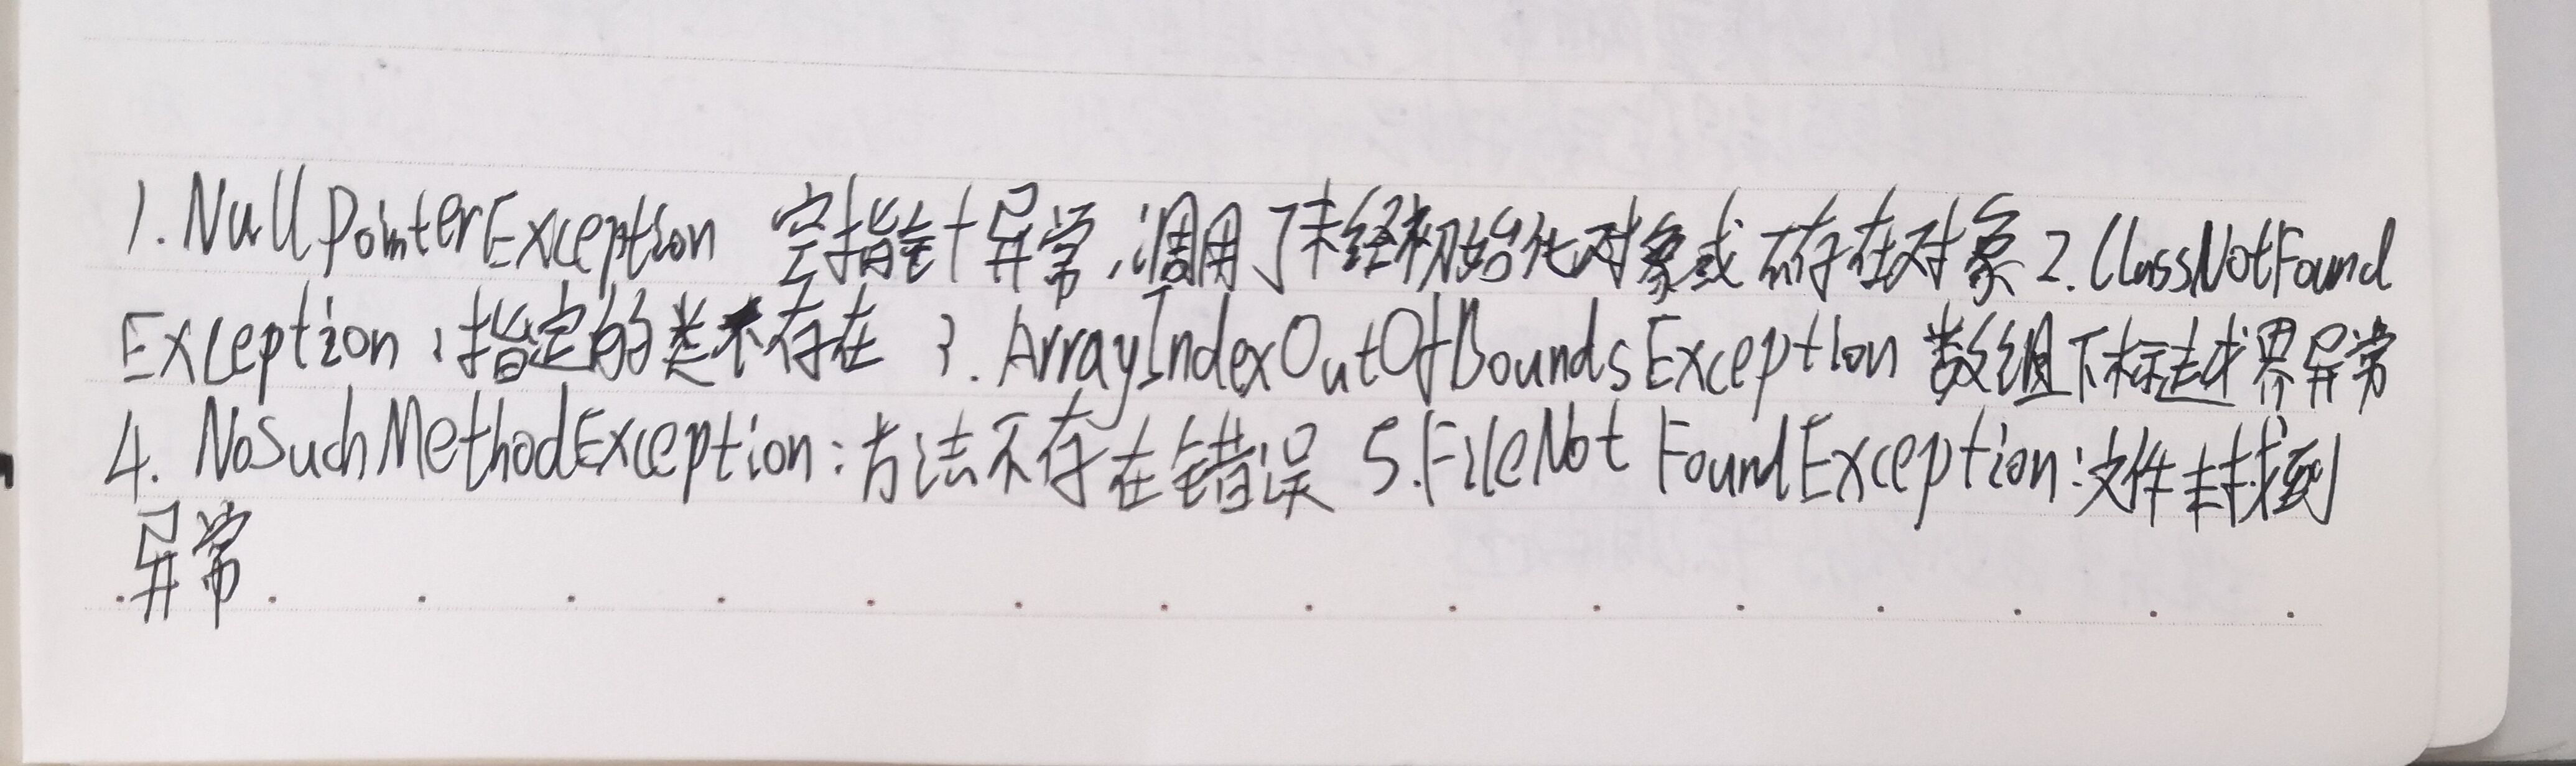 1. NullPointerException 空指针异常,调用了未经初始化对象或不存在对象 2. ClassNotFound
Exception,指定的类不存在 3. ArrayIndexOutOfBoundsException 数组下标越界异常
4. NoSuchMethodException:方法不存在错误 5.FileNot FoundException:文件未找到
异常